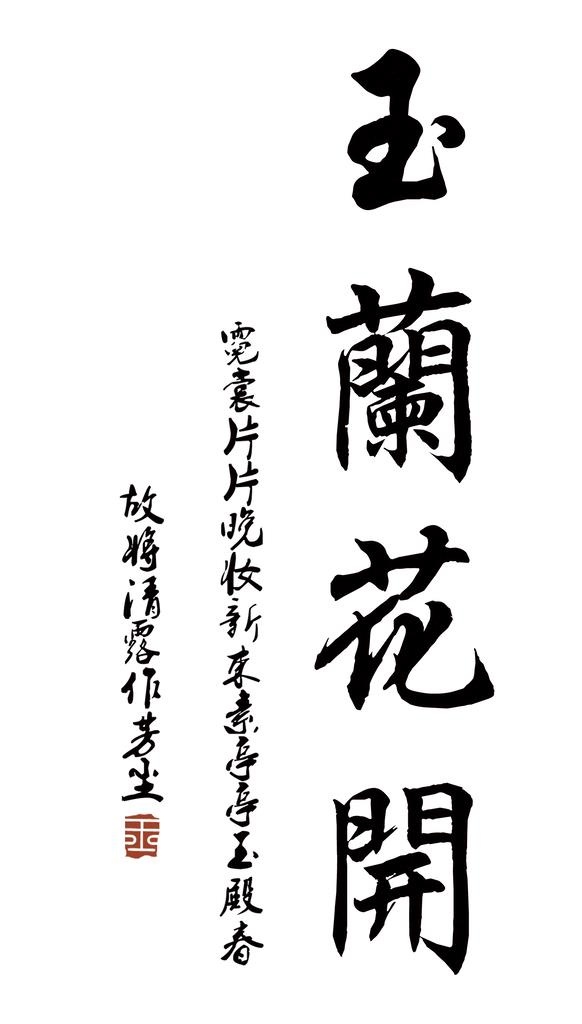 玉蘭花開
霓裳片片晚妝新束素亭亭玉殿春
故將清露作芳塵